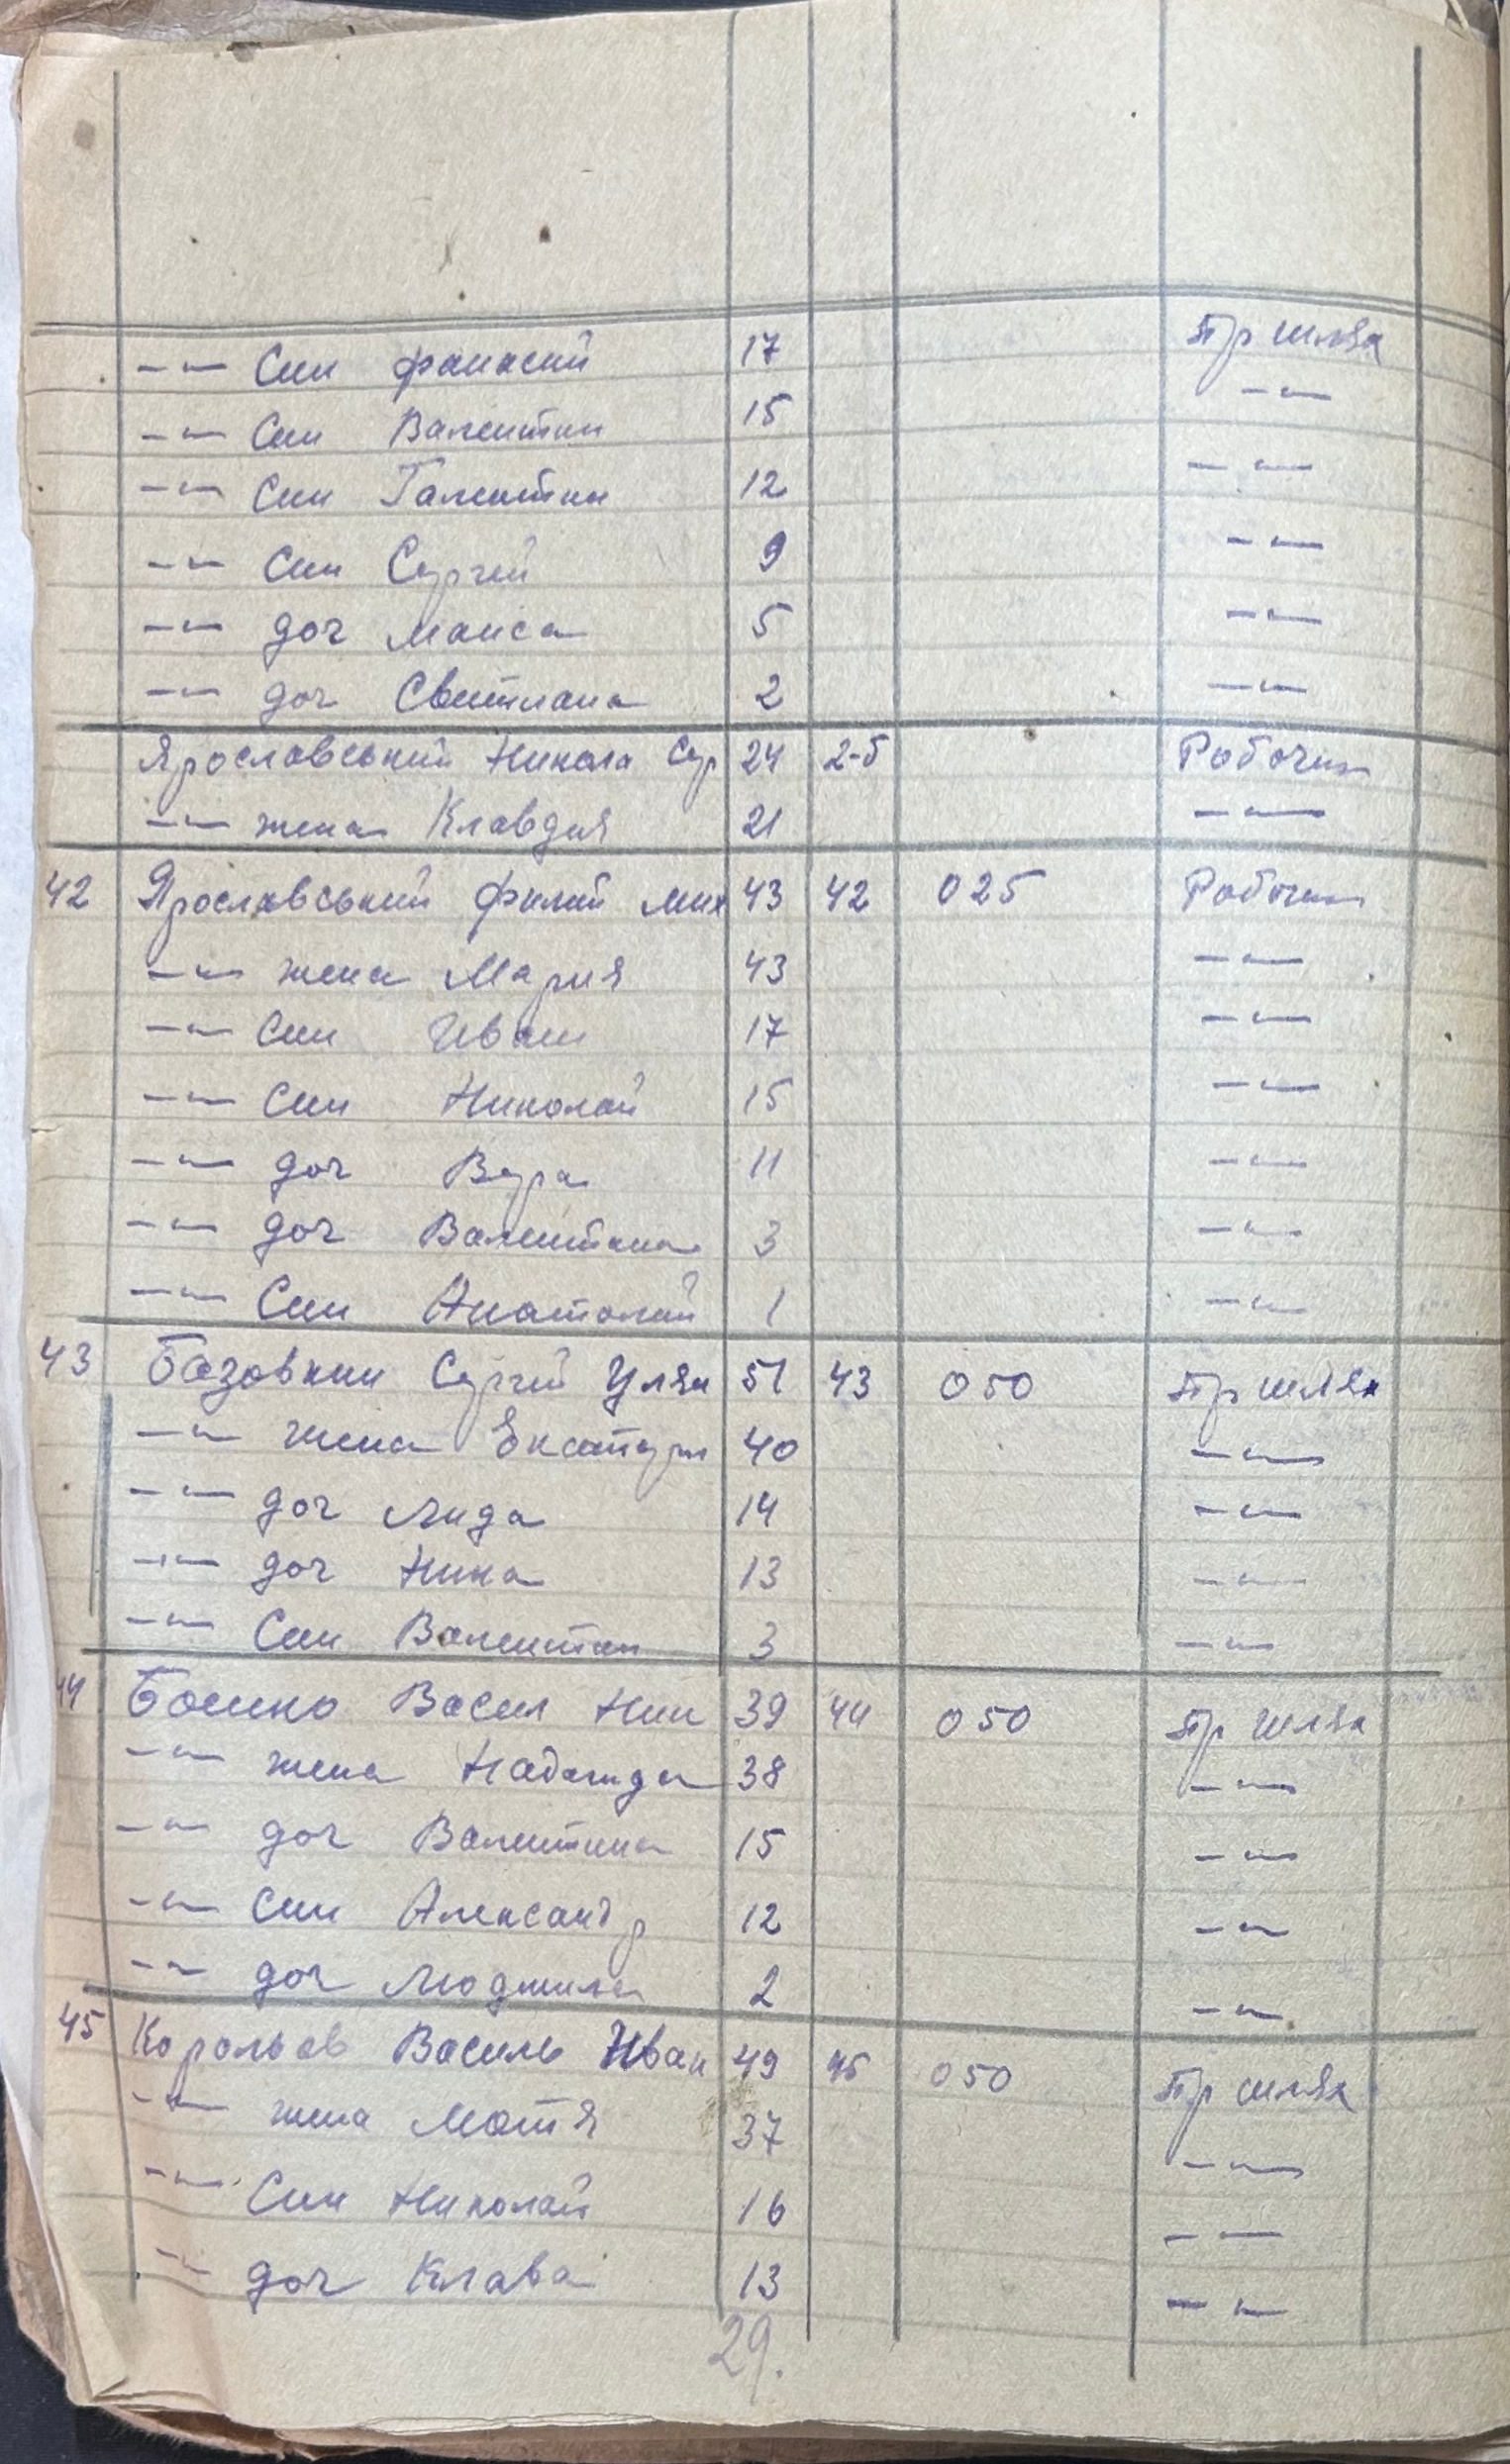 -"- Син Фанасий 17 Пр шлях
-"- Син Валентин 15 -"-
-"- Син Галентин 12 -"-
-"- Син Сергей 9 -"-
-"- доч Маиса 5 -"-
-"- доч Свитлана 2 -"-
Ярославський Никола Сер 24 2-б Рабочих
-"- жена Клавдия 21 -"-
42 Ярославський Филип Мих 43 42 025 Рабочих
-"- жена Мария 43 -"-
-"- Син Иван 17 -"-
-"- Син Николай 15 -"-
-"- доч Вера 11 -"-
-"- доч Валентина 3 -"-
-"- Син Анатолий 1 -"-
43 Базовкин Сергей Улян 51 43 050 Пр шлях
-"- жена Екатери 40 -"-
-"- доч Лида 14 -"-
-"- доч Нина 13 -"-
-"- Син Валентин 3 -"-
44 Васил Ник 39 44 050 Пр шлях
-"- жена Надежда 38 -"-
-"- доч Валентина 15 -"-
-"- Син Александр 12 -"-
-"- доч Людмила 2 -"-
45 Корольов Василь Иван 49 45 050 Пр шлях
-"- жена Мотя 37 -"-
-"- Син Николай 16 -"-
-"- доч Клава 13 -"-
29.